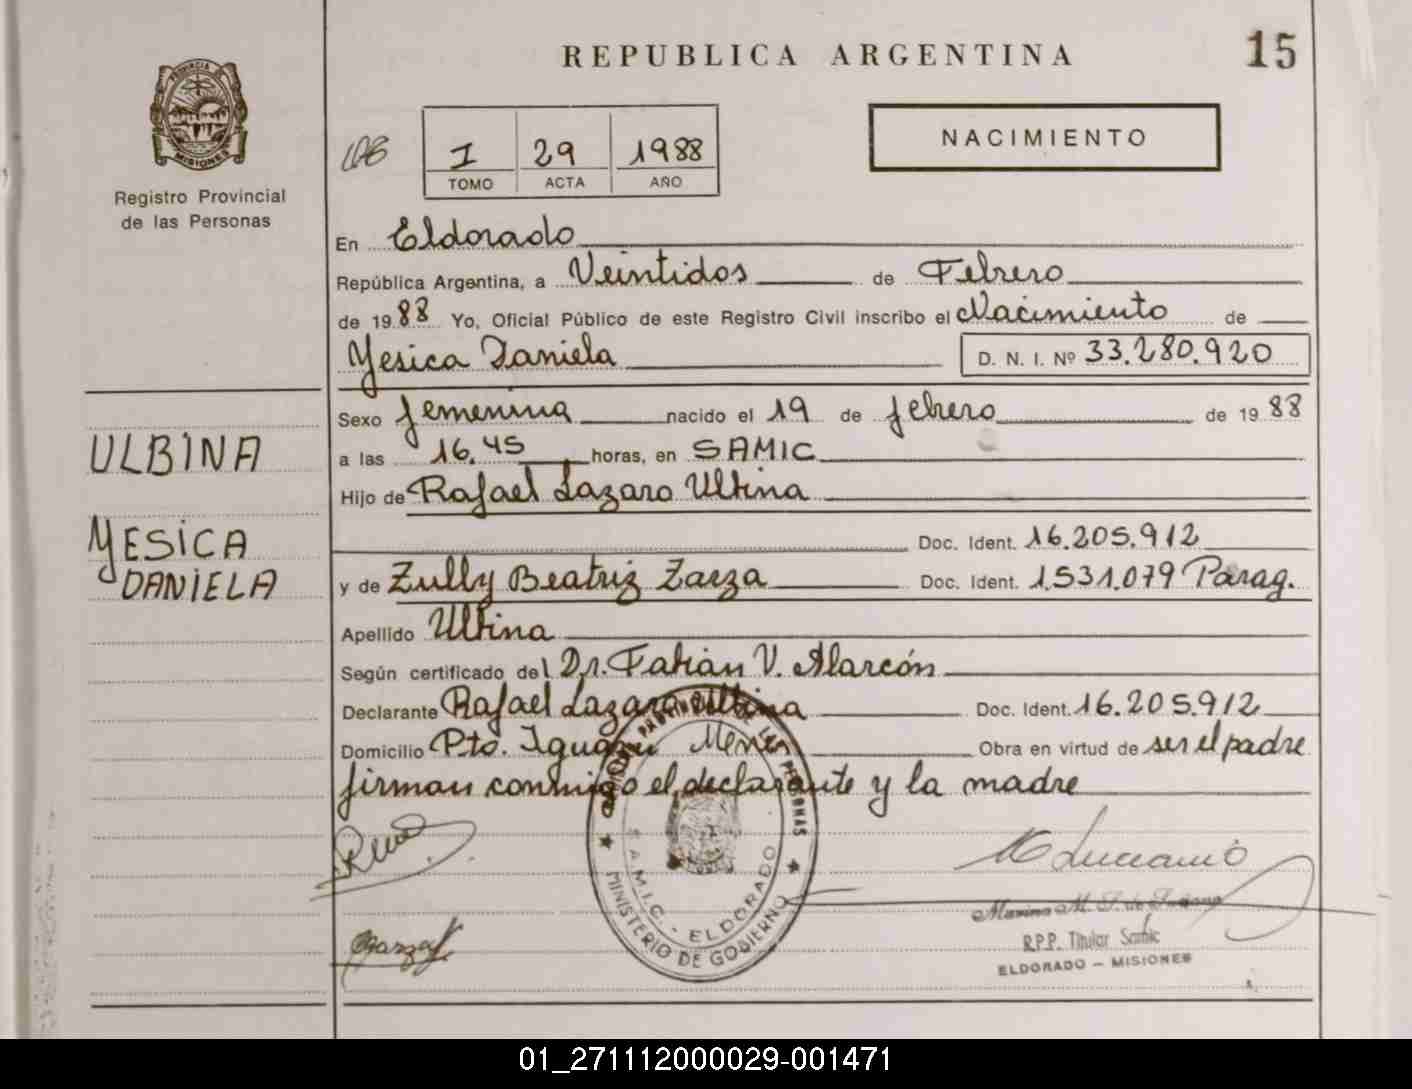 REPUBLICA ARGENTINA
15
PROVINCIA DE MISIONES
Registro Provincial
de las Personas
I 29 1988
TOMO ACTA AÑO
NACIMIENTO
En Eldorado
República Argentina, a Veintidos de Febrero
de 1988 Yo, Oficial Público de este Registro Civil inscribo el Nacimiento de
Yesica Daniela D. N. I. Nº 33.280.920
Sexo femenina nacido el 19 de febrero de 1988
a las 16.45 horas, en SAMIC
Hijo de Rafael Lazaro Ulbina
Doc. Ident. 16.205.912
y de Zully Beatriz Zarza Doc. Ident. 1.531.079 Parag.
Apellido Ulbina
Según certificado del Dr. Fabián V. Alarcón
Declarante Rafael Lazaro Ulbina Doc. Ident. 16.205.912
Domicilio Pto. Iguazu Mnes Obra en virtud de ser el padre
firman conmigo el declarante y la madre
ULBINA
YESICA
DANIELA
PROVINCIAL DE LAS PERSONAS
S.A.M.I.C. - ELDORADO
MINISTERIO DE GOBIERNO
Luciano
Marina M. de
R.P.P. Titular Samic
ELDORADO - MISIONES
01_271112000029-001471